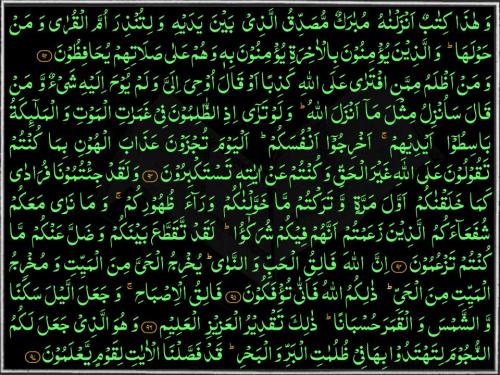 وَ هٰذَا كِتٰبٌ اَنْزَلْنٰهُ مُبٰرَكٌ مُّصَدِّقُ الَّذِیْ بَیْنَ یَدَیْهِ وَ لِتُنْذِرَ اُمَّ الْقُرٰی وَ مَنْ
حَوْلَهَا ؕ وَ الَّذِیْنَ یُؤْمِنُوْنَ بِالْاٰخِرَةِ یُؤْمِنُوْنَ بِهٖ وَ هُمْ عَلٰی صَلَاتِهِمْ یُحَافِظُوْنَ ۹۲
وَ مَنْ اَظْلَمُ مِمَّنِ افْتَرٰی عَلَی اللّٰهِ كَذِبًا اَوْ قَالَ اُوْحِیَ اِلَیَّ وَ لَمْ یُوْحَ اِلَیْهِ شَیْءٌ وَّ مَنْ
قَالَ سَاُنْزِلُ مِثْلَ مَاۤ اَنْزَلَ اللّٰهُ ؕ وَ لَوْ تَرٰۤی اِذِ الظّٰلِمُوْنَ فِیْ غَمَرٰتِ الْمَوْتِ وَ الْمَلٰٓىِٕكَةُ
بَاسِطُوْۤا اَیْدِیْهِمْ ۚ اَخْرِجُوْۤا اَنْفُسَكُمْ ؕ اَلْیَوْمَ تُجْزَوْنَ عَذَابَ الْهُوْنِ بِمَا كُنْتُمْ
تَقُوْلُوْنَ عَلَی اللّٰهِ غَیْرَ الْحَقِّ وَ كُنْتُمْ عَنْ اٰیٰتِهٖ تَسْتَكْبِرُوْنَ ۹۳ وَ لَقَدْ جِئْتُمُوْنَا فُرَادٰی
كَمَا خَلَقْنٰكُمْ اَوَّلَ مَرَّةٍ وَّ تَرَكْتُمْ مَّا خَوَّلْنٰكُمْ وَرَآءَ ظُهُوْرِكُمْ ۚ وَ مَا نَرٰی مَعَكُمْ
شُفَعَآءَكُمُ الَّذِیْنَ زَعَمْتُمْ اَنَّهُمْ فِیْكُمْ شُرَكٰٓؤُا ؕ لَقَدْ تَّقَطَّعَ بَیْنَكُمْ وَ ضَلَّ عَنْكُمْ مَّا
كُنْتُمْ تَزْعُمُوْنَ ۹۴ اِنَّ اللّٰهَ فَالِقُ الْحَبِّ وَ النَّوٰی ؕ یُخْرِجُ الْحَیَّ مِنَ الْمَیِّتِ وَ مُخْرِجُ
الْمَیِّتِ مِنَ الْحَیِّ ؕ ذٰلِكُمُ اللّٰهُ فَاَنّٰی تُؤْفَكُوْنَ ۹۵ فَالِقُ الْاِصْبَاحِ ۚ وَ جَعَلَ الَّیْلَ سَكَنًا
وَّ الشَّمْسَ وَ الْقَمَرَ حُسْبَانًا ؕ ذٰلِكَ تَقْدِیْرُ الْعَزِیْزِ الْعَلِیْمِ ۹۶ وَ هُوَ الَّذِیْ جَعَلَ لَكُمُ
النُّجُوْمَ لِتَهْتَدُوْا بِهَا فِیْ ظُلُمٰتِ الْبَرِّ وَ الْبَحْرِ ؕ قَدْ فَصَّلْنَا الْاٰیٰتِ لِقَوْمٍ یَّعْلَمُوْنَ ۹۷